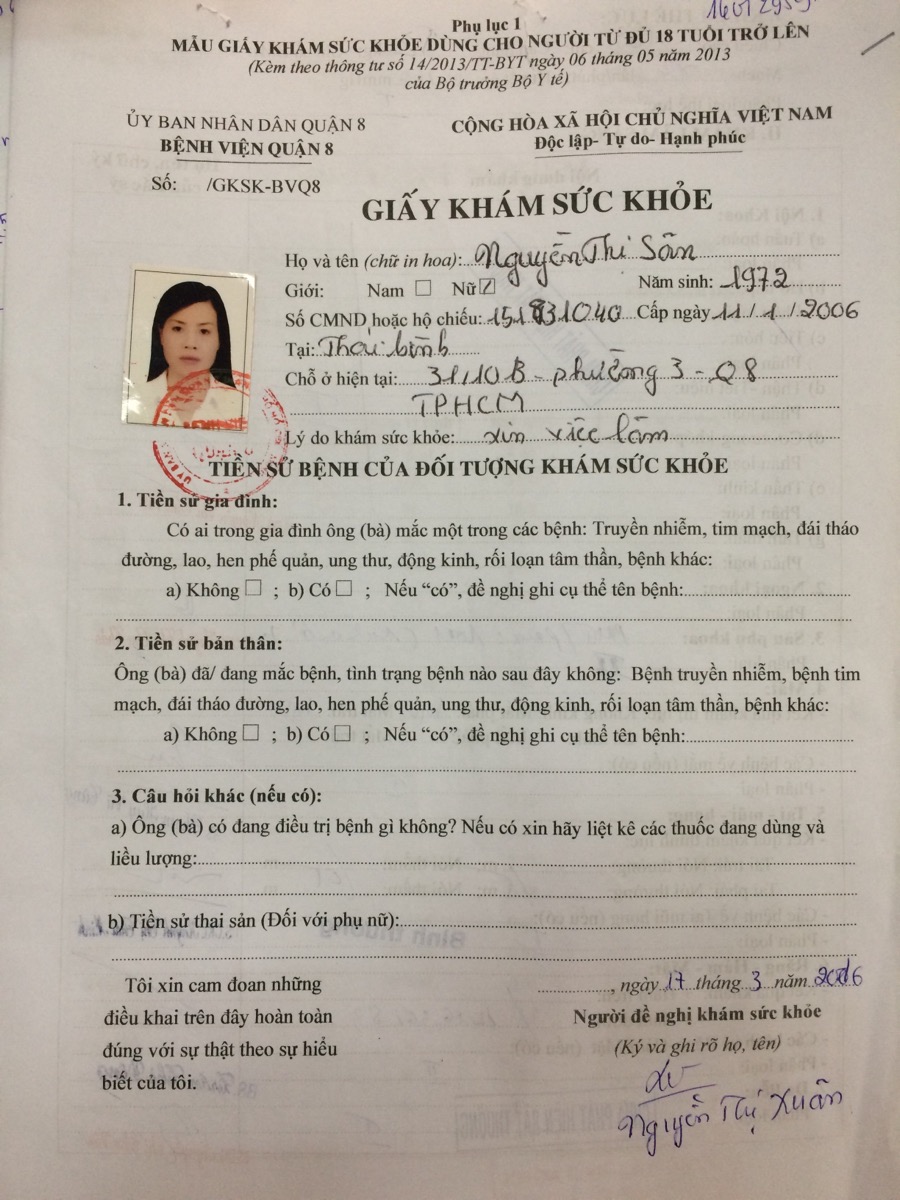 Phụ lục 1
MẪU GIẤY KHÁM SỨC KHỎE DÙNG CHO NGƯỜI TỪ ĐỦ 18 TUỔI TRỞ LÊN
(Kèm theo thông tư số 14/2013/TT-BYT ngày 06 tháng 05 năm 2013
của Bộ trưởng Bộ Y tế)
ỦY BAN NHÂN DÂN QUẬN 8
BỆNH VIỆN QUẬN 8
CỘNG HÒA XÃ HỘI CHỦ NGHĨA VIỆT NAM
Độc lập- Tự do- Hạnh phúc
Số: /GKSK-BVQ8
GIẤY KHÁM SỨC KHỎE
Họ và tên (chữ in hoa): Nguyễn Thi
Giới: Nam ☐ Nữ ☑ Năm sinh: 1972
Số CMND hoặc hộ chiếu: Cấp ngày 11/1/2006
Tại: Thái bình
Chỗ ở hiện tại: 31/10B - phường 3 - Q8
TPHCM
Lý do khám sức khỏe: xin việc làm
TIỀN SỬ BỆNH CỦA ĐỐI TƯỢNG KHÁM SỨC KHỎE
1. Tiền sử gia đình:
Có ai trong gia đình ông (bà) mắc một trong các bệnh: Truyền nhiễm, tim mạch, đái tháo
đường, lao, hen phế quản, ung thư, động kinh, rối loạn tâm thần, bệnh khác:
a) Không ☐ ; b) Có ☐ ; Nếu “có”, đề nghị ghi cụ thể tên bệnh:
2. Tiền sử bản thân:
Ông (bà) đã/ đang mắc bệnh, tình trạng bệnh nào sau đây không: Bệnh truyền nhiễm, bệnh tim
mạch, đái tháo đường, lao, hen phế quản, ung thư, động kinh, rối loạn tâm thần, bệnh khác:
a) Không ☐ ; b) Có ☐ ; Nếu “có”, đề nghị ghi cụ thể tên bệnh:
3. Câu hỏi khác (nếu có):
a) Ông (bà) có đang điều trị bệnh gì không? Nếu có xin hãy liệt kê các thuốc đang dùng và
liều lượng:
b) Tiền sử thai sản (Đối với phụ nữ):
Tôi xin cam đoan những
điều khai trên đây hoàn toàn
đúng với sự thật theo sự hiểu
biết của tôi.
, ngày 17 tháng 3 năm 2016
Người đề nghị khám sức khỏe
(Ký và ghi rõ họ, tên)
Nguyễn Thị Xuân